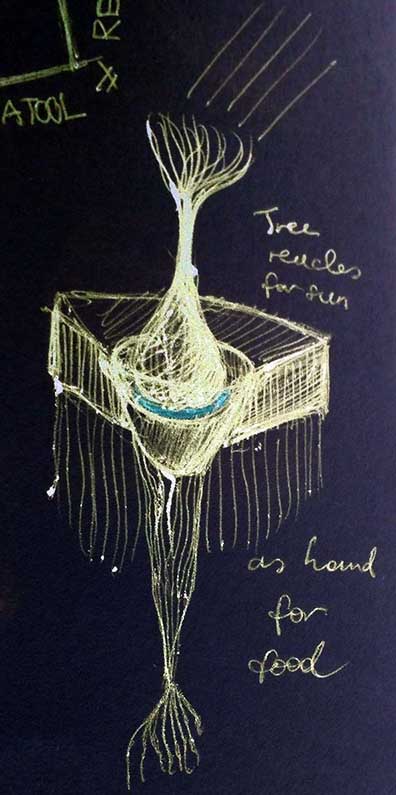 RE
A TOOL X
Tree
reaches
for sun
as hand
for
food